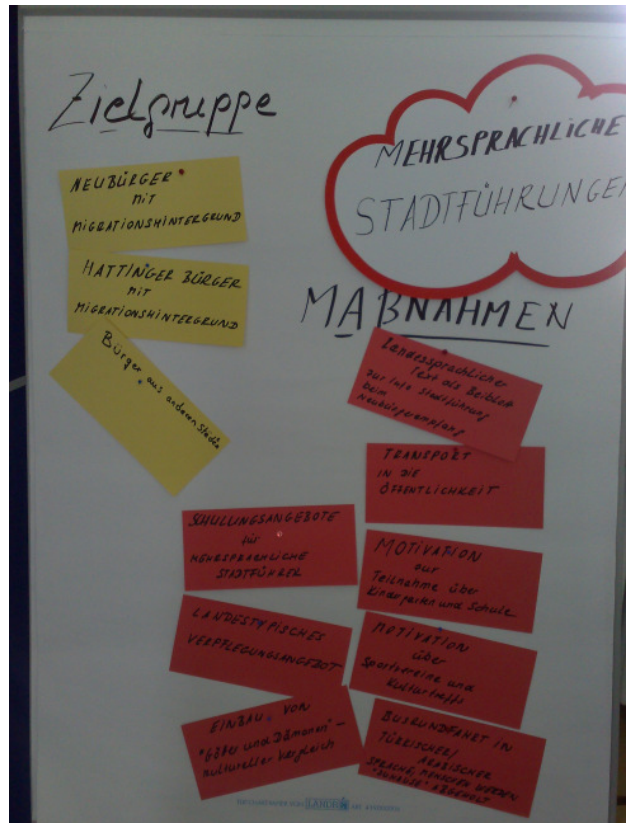 Zielgruppe
MEHRSPRACHLICHE
STADTFÜHRUNGEN
NEUBÜRGER
MIT
MIGRATIONSHINTERGRUND
HATTINGER BÜRGER
MIT
MIGRATIONSHINTERGRUND
Bürger aus anderen Städten
MAßNAHMEN
Landessprachlicher
Text als Beiblatt
zur Info Stadtführung
beim
Neubürgerempfang
TRANSPORT
IN DIE
ÖFFENTLICHKEIT
SCHULUNGSANGEBOTE
für
MEHRSPRACHLICHE
STADTFÜHRER
MOTIVATION
zur
Teilnahme über
Kindergarten und Schule
LANDESTYPISCHES
VERPFLEGUNGSANGEBOT
MOTIVATION
über
Sportvereine und
Kulturtreffs
EINBAU VON
"Götter und Dämonen" –
kultureller Vergleich
BUSRUNDFAHRT IN
TÜRKISCHER/
ARABISCHER
SPRACHE, MENSCHEN WERDEN
"ZUHAUSE" ABGEHOLT